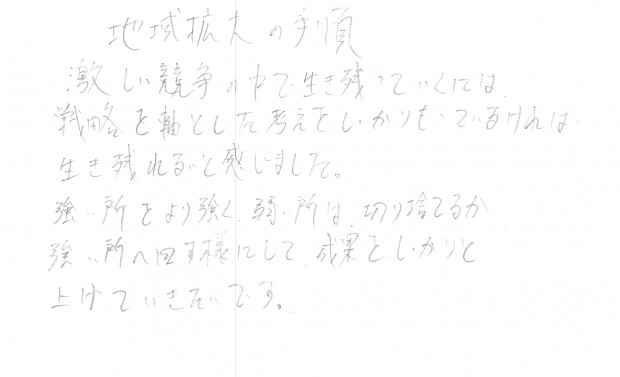 地域拡大の手順
激しい競争の中で生き残っていくには
戦略を軸とした考えをしっかりもっていなければ
生き残れないと感じました。
強い所をより強く、弱い所は、切り捨てるか
強い所へ回す様にして、成果をしっかりと
上げていきたいです。